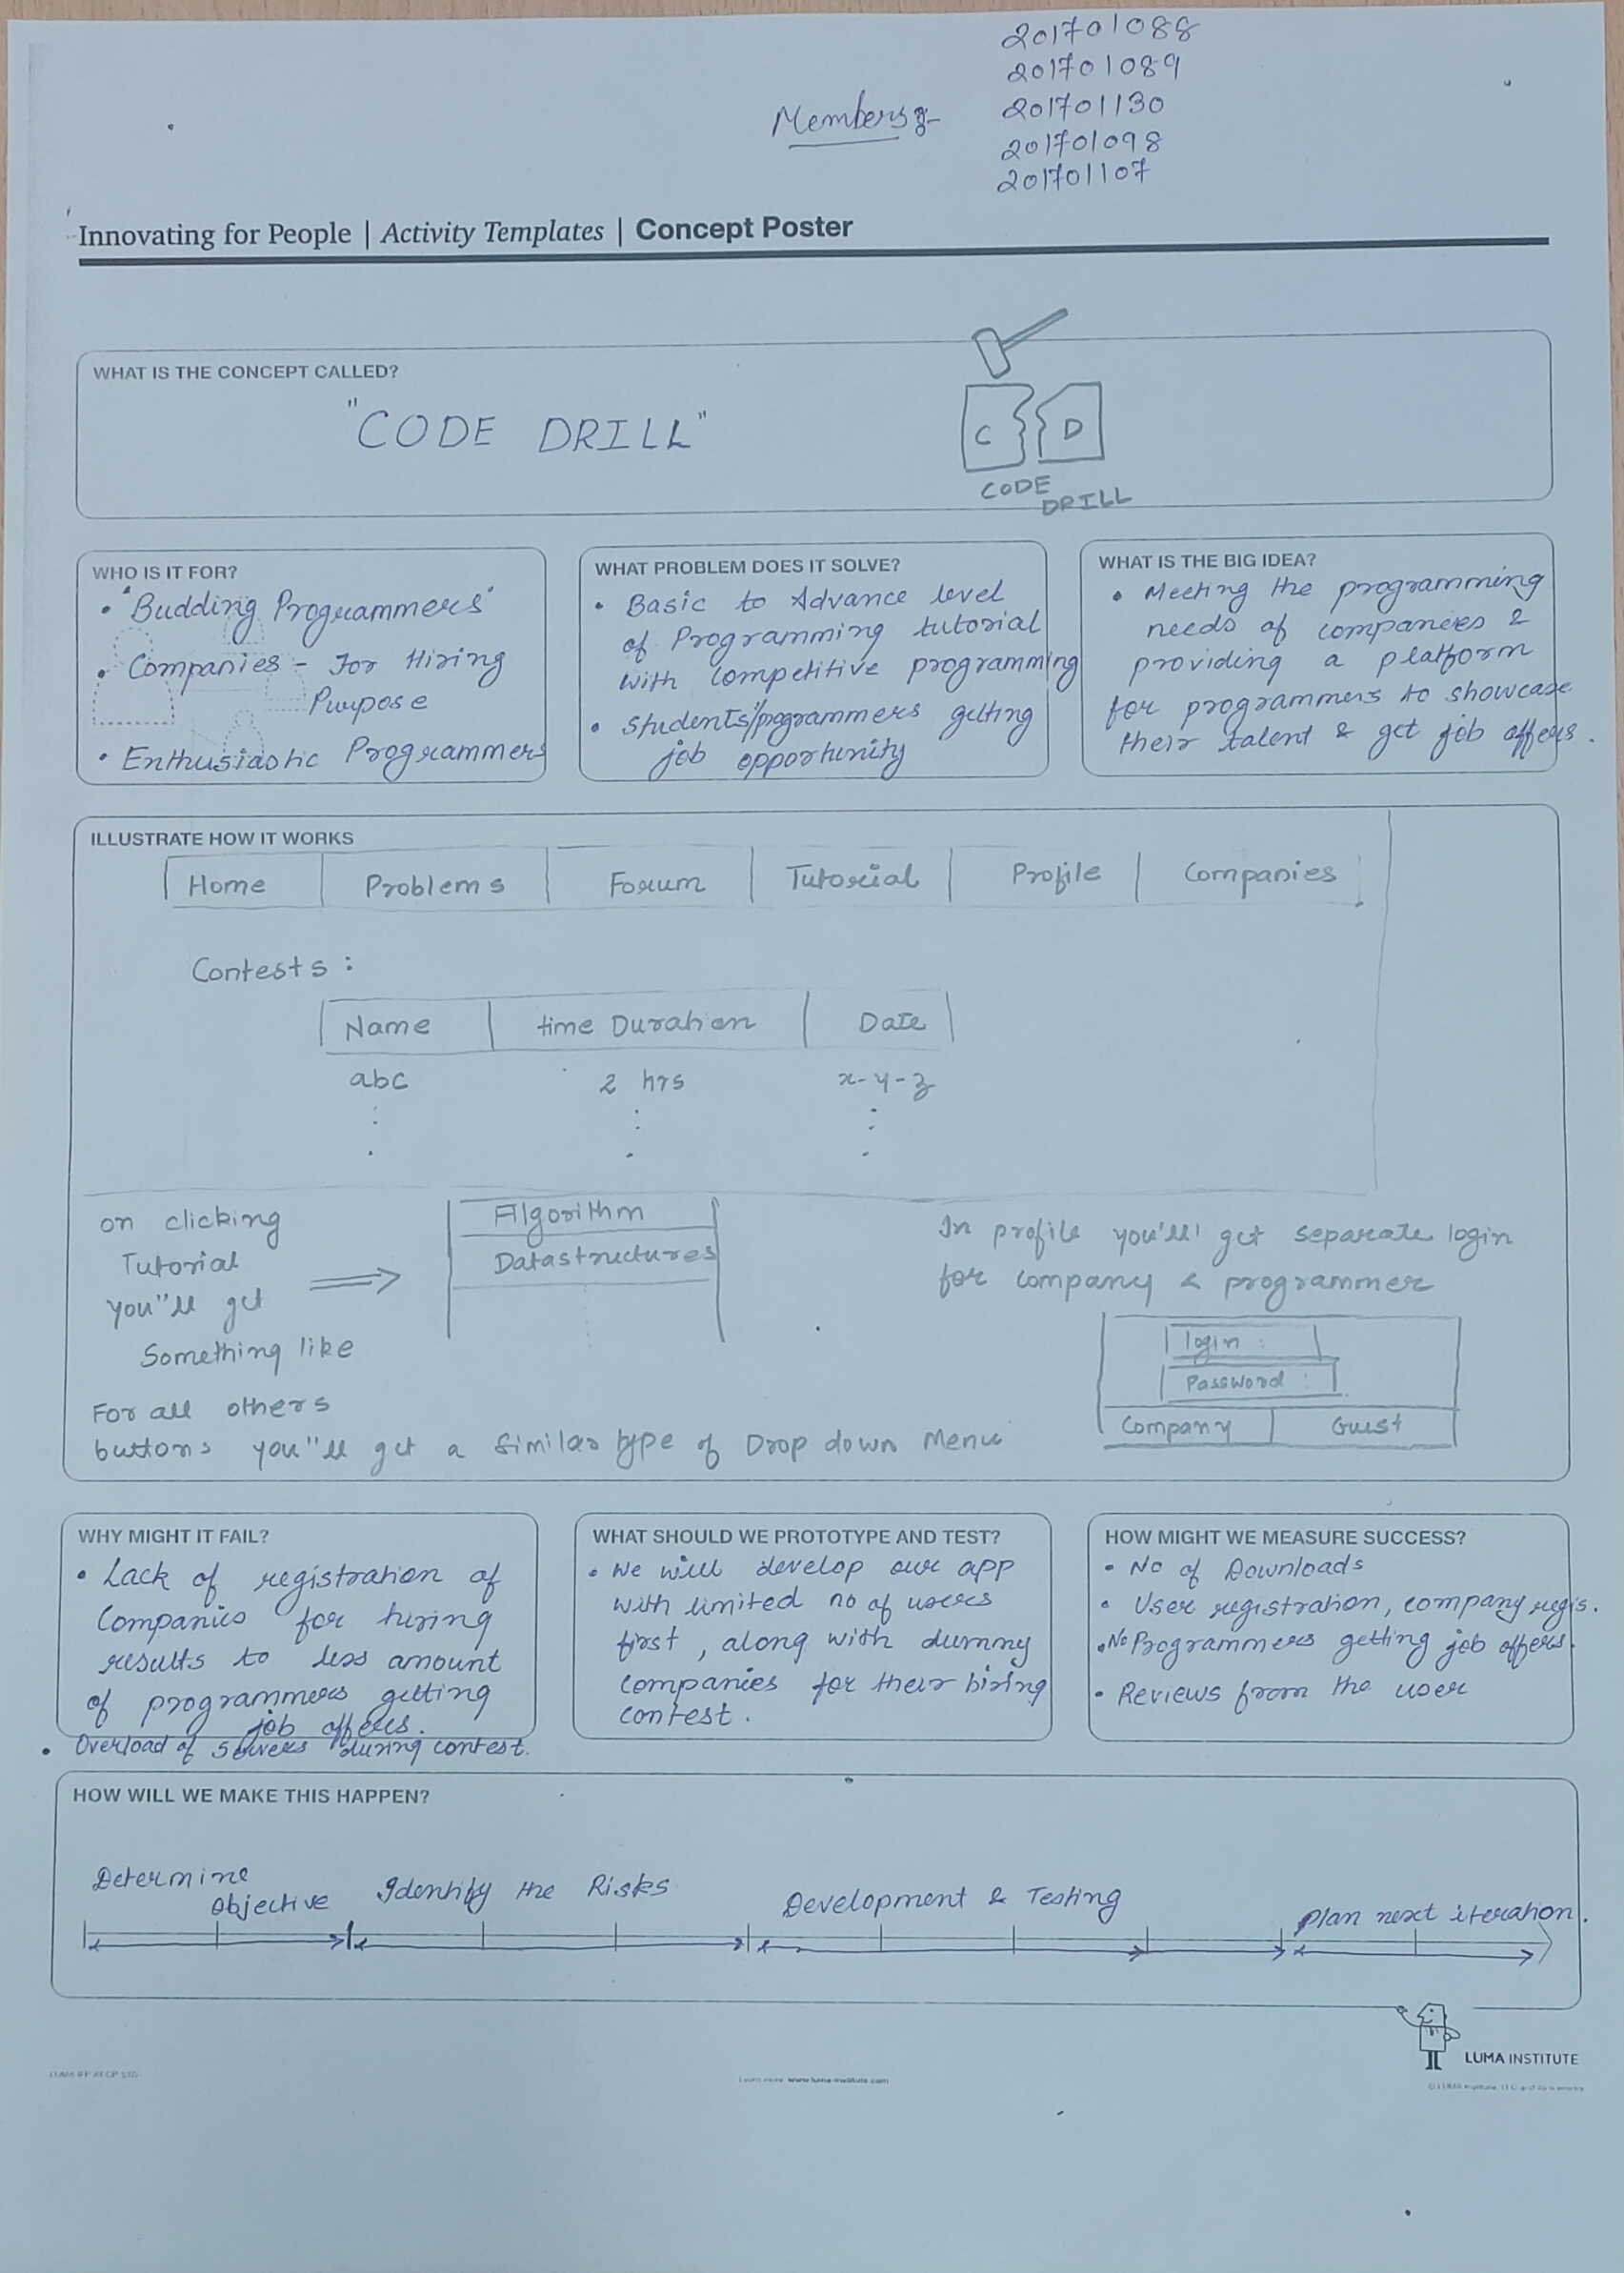 201701088
201701089
Members :- 201701130
201701098
201701107
Innovating for People | Activity Templates | Concept Poster
WHAT IS THE CONCEPT CALLED?
"CODE DRILL"
C D
CODE
DRILL
WHO IS IT FOR?
• "Budding Programmers"
• Companies - For Hiring
Purpose
• Enthusiastic Programmers
WHAT PROBLEM DOES IT SOLVE?
• Basic to Advance level
of Programming tutorial
with competitive programming
• Students/programmers getting
job opportunity
WHAT IS THE BIG IDEA?
• Meeting the programming
needs of companies &
providing a platform
for programmers to showcase
their talent & get job offers.
ILLUSTRATE HOW IT WORKS
Home Problems Forum Tutorial Profile Companies
Contests :
Name time Duration Date
abc 2 hrs x-y-z
on clicking
Tutorial
you"ll get
Something like
Algorithm
Datastructures
In profile you'll get separate login
for company & programmer
login :
Password :
Company Guest
For all others
buttons you"ll get a similar type of Drop down Menu
WHY MIGHT IT FAIL?
• Lack of registration of
Companies for hiring
results to less amount
of programmers getting
job offers.
• Overload of Servers during contest.
WHAT SHOULD WE PROTOTYPE AND TEST?
• We will develop our app
with limited no of users
first, along with dummy
companies for their hiring
contest.
HOW MIGHT WE MEASURE SUCCESS?
• No of Downloads
• User registration, company regis.
• No Programmers getting job offers.
• Reviews from the user
HOW WILL WE MAKE THIS HAPPEN?
Determine
Objective
Identify the Risks
Development & Testing
Plan next iteration.
LUMA INSTITUTE
Learn more: www.luma-institute.com